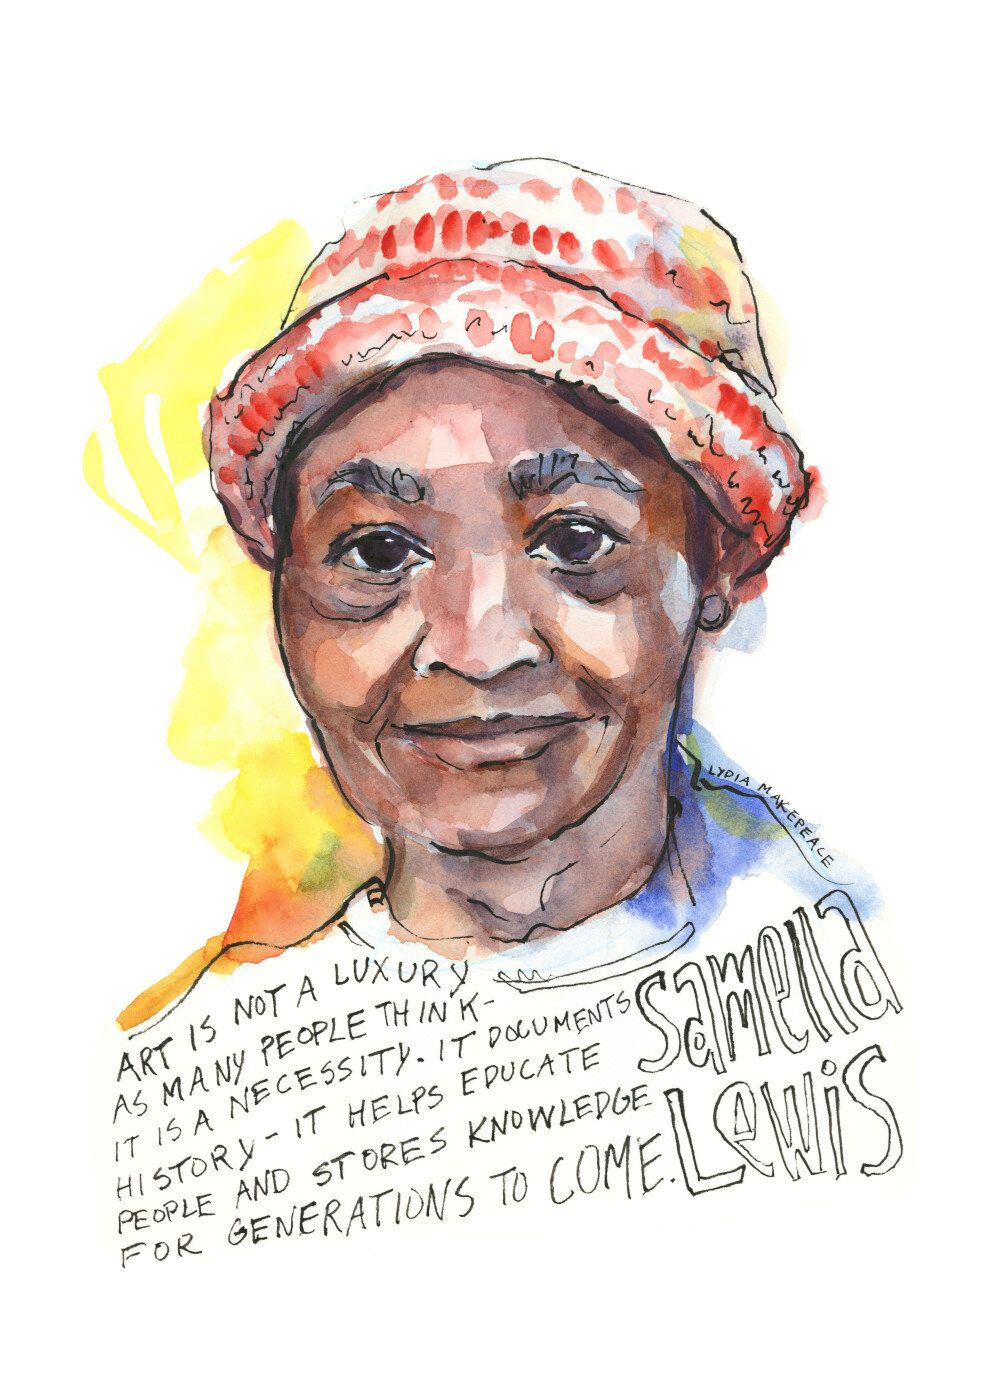 LYDIA MAKEPEACE
ART IS NOT A LUXURY
AS MANY PEOPLE THINK-
IT IS A NECESSITY. IT DOCUMENTS
HISTORY - IT HELPS EDUCATE
PEOPLE AND STORES KNOWLEDGE
FOR GENERATIONS TO COME.
Samella
Lewis